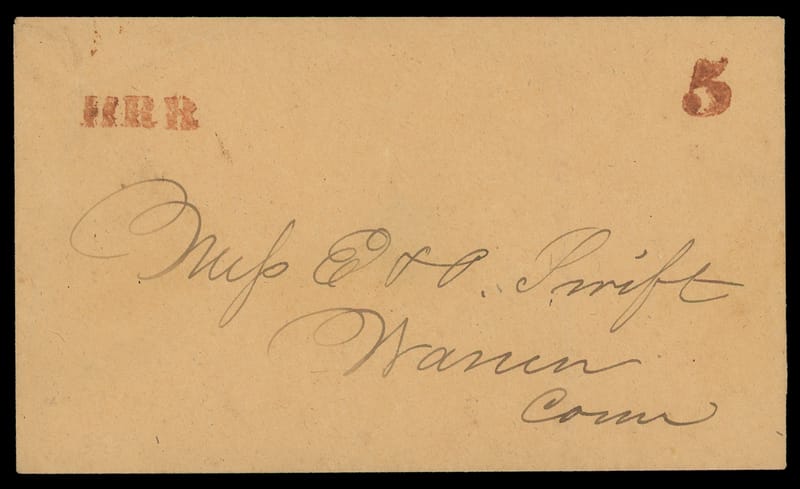 HRR
5
Miss E & O. Swift
Warren
Conn